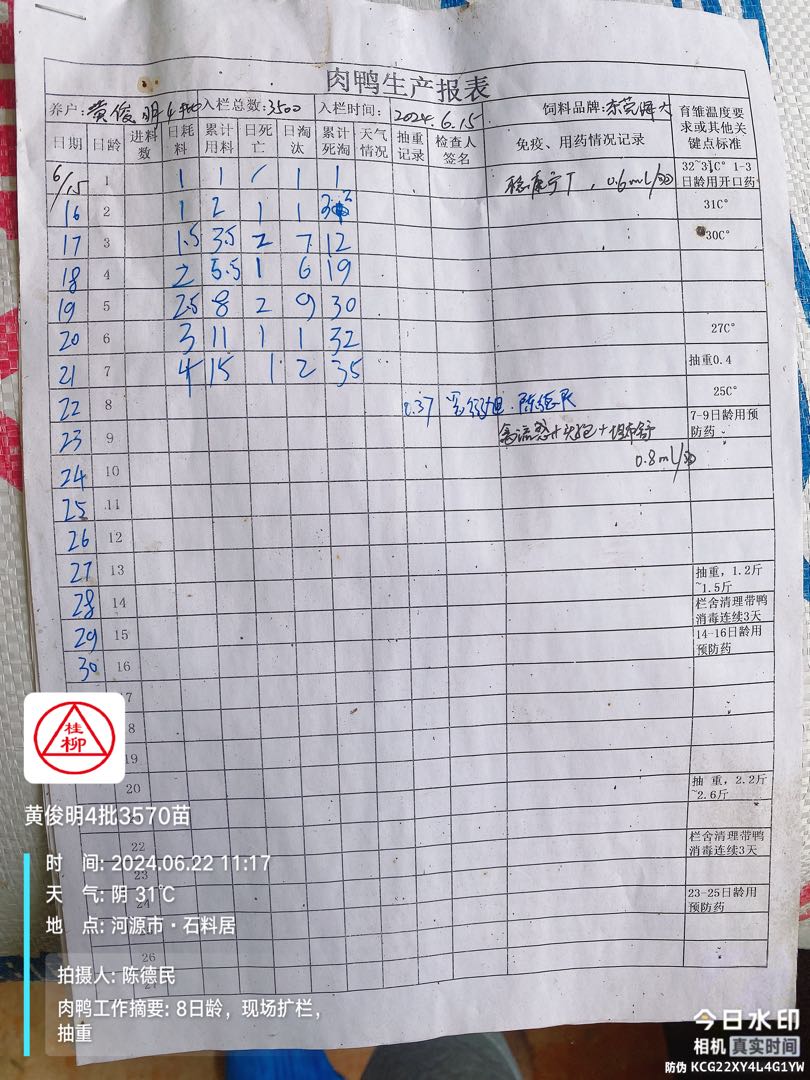 肉鸭生产报表
养户: 黄俊明4批 入栏总数:3500 入栏时间: 2024.6.15 饲料品牌: 东莞 大 育雏温度要求或其他关键点标准
日期 日龄 进料数 日耗料 累计用料 日死亡 日淘汰 累计死淘 天气情况 抽重记录 检查人签名 免疫、用药情况记录
6/15 1 1 1 / 1 1 0.6ml/ 32~31C° 1-3日龄用开口药
16 2 1 2 1 1 3 31C°
17 3 1.5 3.5 2 7 12 30C°
18 4 2 5.5 1 6 19
19 5 2.5 8 2 9 30
20 6 3 11 1 1 32 27C°
21 7 4 15 1 2 35 抽重0.4
22 8 0.37 陈德民 25C°
23 9 禽流感+ + 0.8ml/ 7-9日龄用预防药
24 10
25 11
26 12
27 13 抽重, 1.2斤~1.5斤
28 14 栏舍清理带鸭消毒连续3天
29 15 14-16日龄用预防药
30 16
7
8
19
20 抽 重, 2.2斤~2.6斤
22 栏舍清理带鸭消毒连续3天
23
24 23-25日龄用预防药
26
桂柳
黄俊明4批3570苗
时 间: 2024.06.22 11:17
天 气: 阴 31℃
地 点: 河源市·石料居
拍摄人: 陈德民
肉鸭工作摘要: 8日龄，现场扩栏，
抽重
今日水印
相机 真实时间
防伪 KCG22XY4L4G1YW